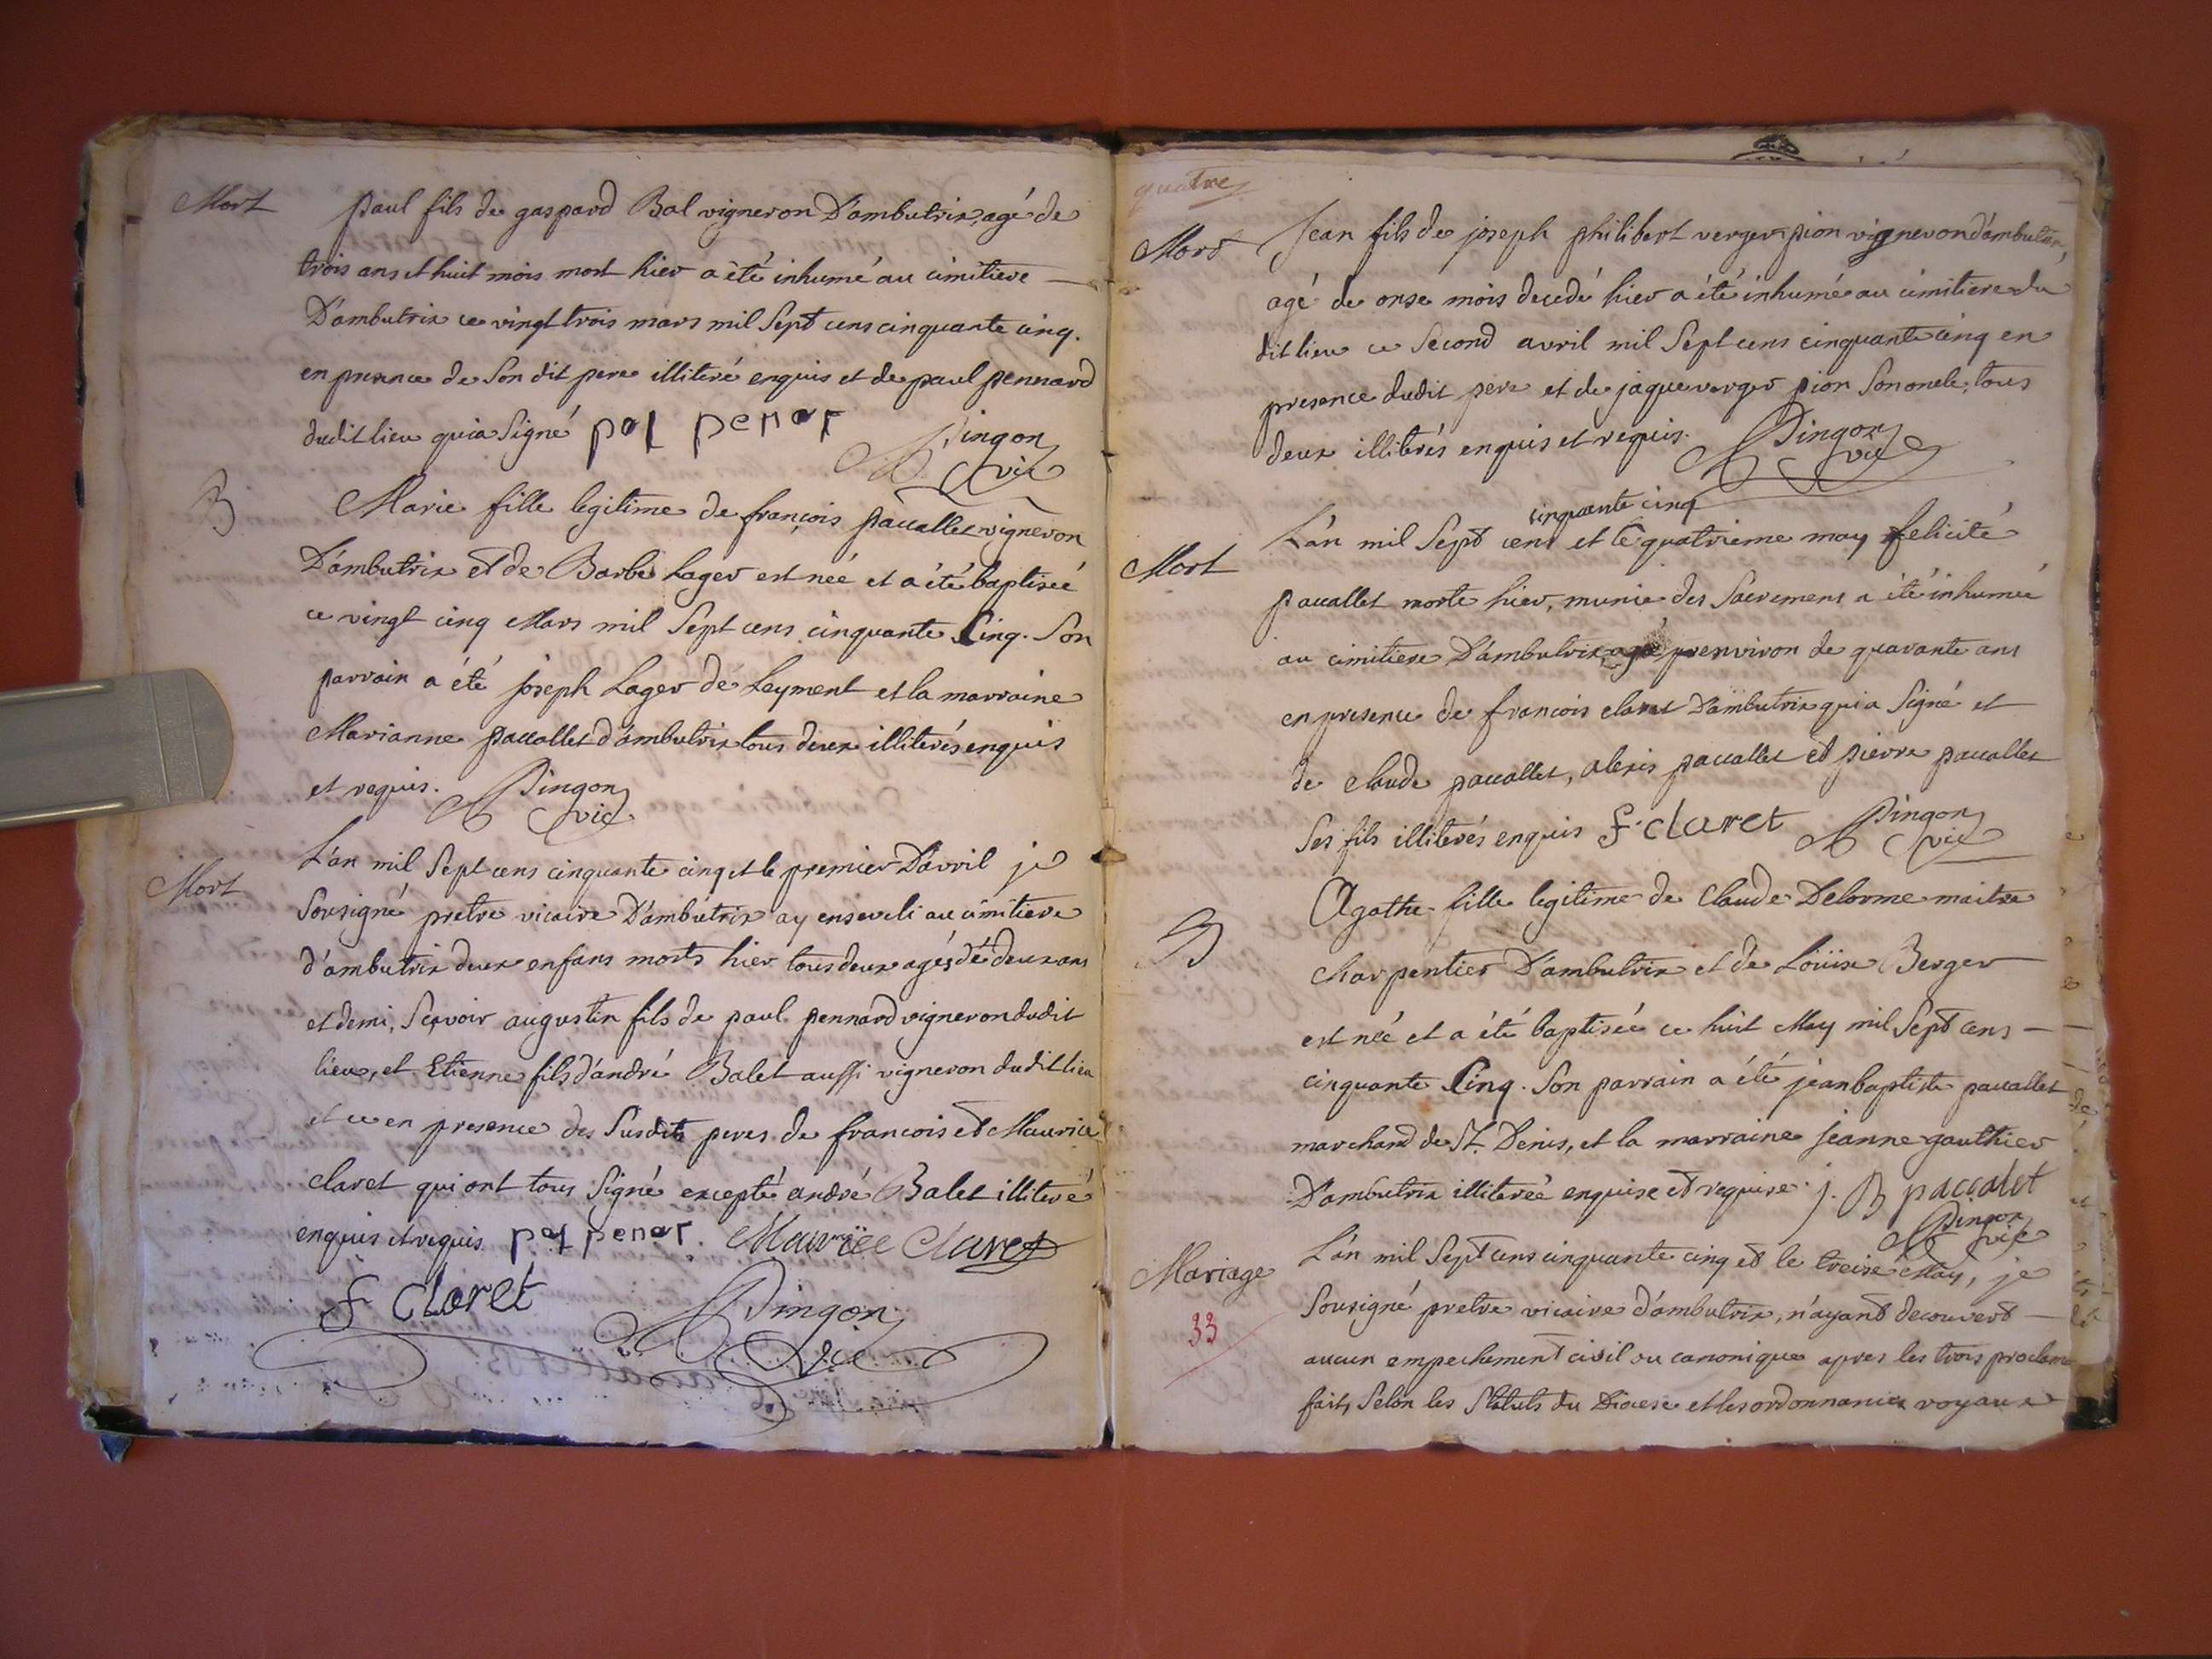 Mort
paul fils de gaspard Bal vigneron D'ambutrix, agé de
trois ans et huit mois mort hier a èté inhumé au cimitiere
D'ambutrix ce vingt trois mars mil Sept cens cinquante cinq.
en presence de Son dit pere illiteré enquis et de paul pennard
dudit lieu qui a Signé pol penar Dingon
vic
B
Marie fille legitime de françois paccallet vigneron
D'ambutrix et de Barbe Lager est neé et a été baptiseé
ce vingt cinq Mars mil Sept cens cinquante Cinq. Son
parrain a été joseph Lager de Leyment et la marraine
Marianne paccallet d'ambutrix tous deux illiterés enquis
et requis. Dingon
vic
Mort
L'an mil Sept cens cinquante cinq et le premier D'avril je
Sousigné pretre vicaire D'ambutrix ay enseveli au cimitiere
d'ambutrix deux enfans morts hier tous deux agés de deux ans
et demi, Sçavoir augustin fils de paul pennard vigneron dudit
lieu, et Etienne fils d'andré Balet aussi vigneron dudit lieu
et ce en presence des Susdits peres de francois et Maurice
claret qui ont tous Signé excepté andré Balet illiteré
enquis et requis pol penar. Maurice Claret
f Claret Dingon
vic
quatre
Mort
Jean fils de joseph philibert verger pion vigneron d'ambutrix,
agé de onse mois decedé hier a été inhumé au cimitiere du
dit lieu ce Second avril mil Sept cens cinquante cinq en
presence dudit pere et de jaque verger pion Son oncle, tous
deux illiterés enquis et requis. Dingon
vic
cinquante cinq
Mort
L'an mil Sept cens et le quatrieme may felicité
paccallet morte hier, munie des Sacremens a été inhumée
au cimitiere D'ambutrix, agé environ de quarante ans
en presence de francois claret D'ambutrix qui a Signé et
de claude paccallet, alexis paccallet et pierre paccallet
Ses fils illiterés enquis f. claret Dingon
vic
B
Agathe fille legitime de Claude Delorme maitre
charpentier D'ambutrix et de Loüise Berger
est neé et a été baptisée ce huit May mil Sept cens
cinquante Cinq. Son parrain a été jean baptiste paccallet
marchand de St. Denis, et la marraine jeanne gauthier
D'ambutrix illitereé enquise et requise. j. B paccalet
Dingon
vic
Mariage
33
L'an mil Sept cens cinquante cinq et le treise May, je
Sousigné pretre vicaire d'ambutrix, n'ayant decouvert
aucun empechement civil ou canonique apres les trois proclam
fait, Selon les Statuts du Diocese et les ordonnances royaux